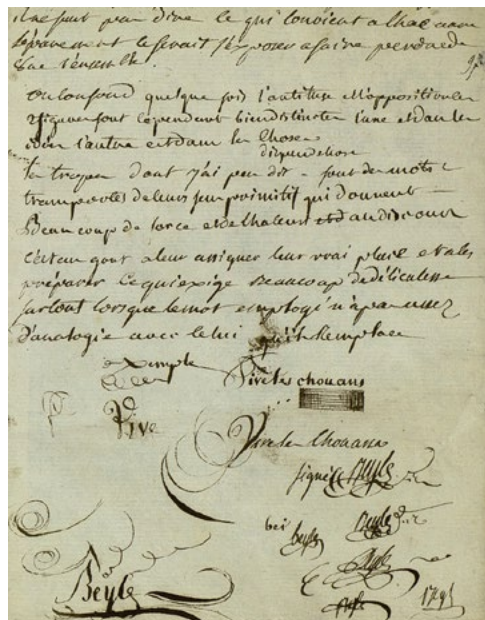 il ne faut pas dire ce qui convient a chacun
séparement ce serait s'exposer a faire perdre de
vue l'ensemble.
on confond quelque fois l'antitese et l'opposition les
figures sont cependant bien distinctes l'une est dans les
idées l'autre est dans les choses
les tropes dont j'ai peu dit sont des mots
transportés de leurs sens primitif qui donnent
Beaucoup de force et de chaleurs au discours
assigner leur vrai place et a les
préparer ce qui exige Beaucoup de délicatesse
surtout lorsque le mot employé n'a pas assez
d'analogie avec celui qu'il Remplace
Exemple
Vive les chouans
Vive
Vive les Chouans
signé Beyle
bei Beyle Beyle
Beyle
Beyle